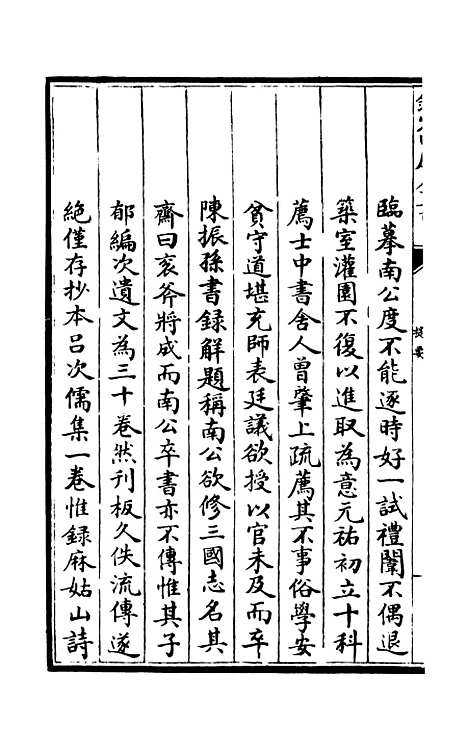 臨摹南公度不能逐時好一試禮闈不偶退
築室灌園不復以進取為意元祐初立十科
薦士中書舍人曾肇上疏薦其不事俗學安
貧守道堪充師表廷議欲授以官未及而卒
陳振孫書録解題稱南公欲修三國志名其
齋曰衮斧將成而南公卒書亦不傳惟其子
郁編次遺文為三十卷然刋板久佚流傳遂
絶僅存抄本吕次儒集一卷惟録麻姑山詩
提要